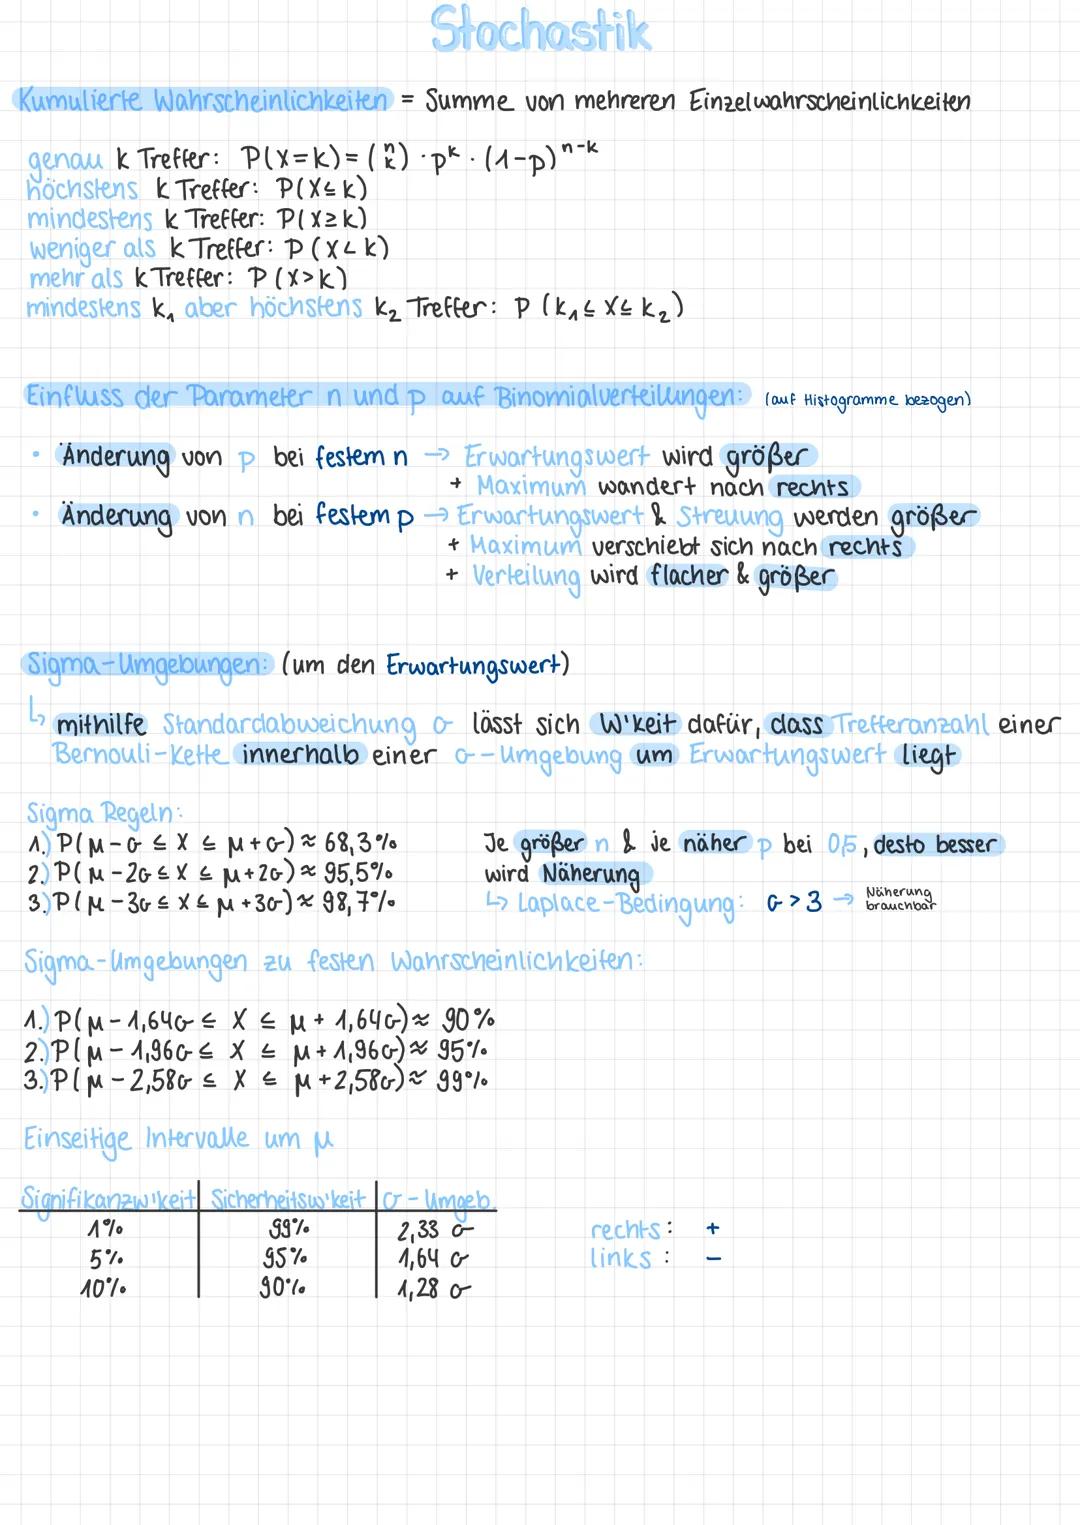 Stochastik
Kumulierte Wahrscheinlichkeiten = Summe von mehreren Einzelwahrscheinlichkeiten
genau k Treffer: P(X=k) = (n k) · p^k · (1-p)^n-k
höchstens k Treffer: P(X≤k)
mindestens k Treffer: P(X≥k)
weniger als k Treffer: P(X<k)
mehr als k Treffer: P(X>k)
mindestens k₁ aber höchstens k₂ Treffer: P(k₁≤X≤k₂)
Einfluss der Parameter n und p auf Binomialverteilungen: (auf Histogramme bezogen)
• Änderung von p bei festem n → Erwartungswert wird größer
+ Maximum wandert nach rechts
• Änderung von n bei festem p → Erwartungswert & Streuung werden größer
+ Maximum verschiebt sich nach rechts
+ Verteilung wird flacher & größer
Sigma-Umgebungen: (um den Erwartungswert)
↳ mithilfe Standardabweichung σ lässt sich W'keit dafür, dass Trefferanzahl einer
Bernouli-Kette innerhalb einer σ--Umgebung um Erwartungswert liegt
Sigma Regeln:
1.) P(μ-σ ≤ X ≤ μ+σ) ≈ 68,3%
2.) P(μ-2σ ≤ X ≤ μ+2σ) ≈ 95,5%
3.) P(μ-3σ ≤ X ≤ μ+3σ) ≈ 98,7%
Je größer n & je näher p bei 0,5, desto besser
wird Näherung
↳ Laplace-Bedingung: σ > 3 → Näherung
brauchbar
Sigma-Umgebungen zu festen Wahrscheinlichkeiten:
1.) P(μ-1,64σ ≤ X ≤ μ+1,64σ) ≈ 90%
2.) P(μ-1,96σ ≤ X ≤ μ+1,96σ) ≈ 95%
3.) P(μ-2,58σ ≤ X ≤ μ+2,58σ) ≈ 99%
Einseitige Intervalle um μ
Signifikanzw'keit Sicherheitsw'keit σ-Umgeb.
1% 99% 2,33 σ
5% 95% 1,64 σ
10% 90% 1,28 σ
rechts: +
links: -